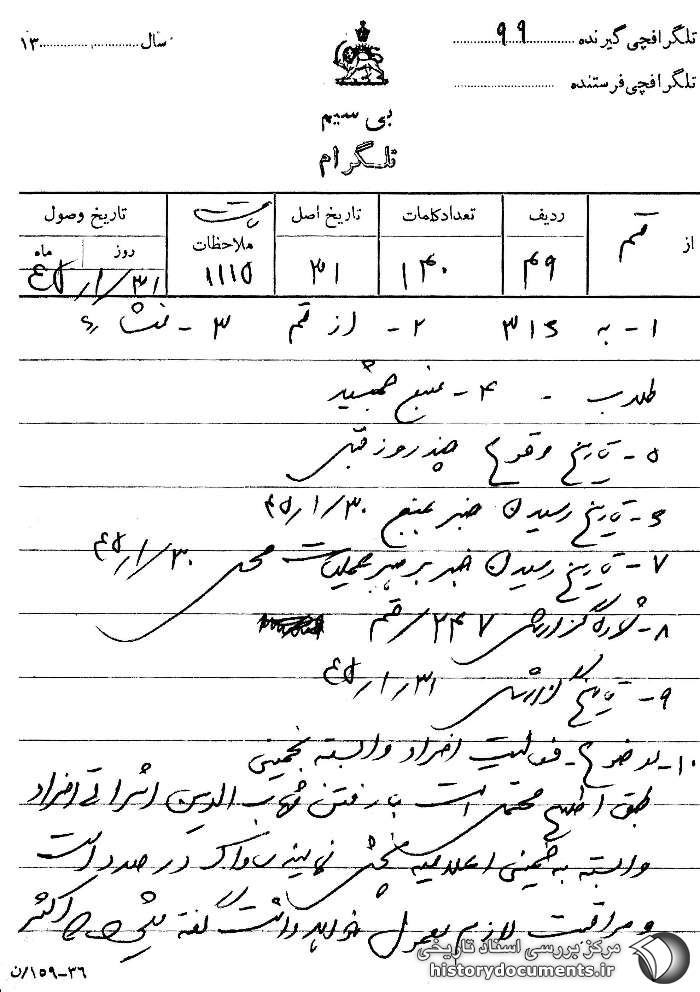 تلگرافچی گیرنده ۹۹
سال ۱۳
تلگرافچی فرستنده
بی سیم
تلگرام
از قم
ردیف ۴۹
تعداد کلمات ۱۴۰
تاریخ اصل ۳۱
ملاحظات ۱۱۱۵
تاریخ وصول
روز ماه
۴۵/۱/۳۱
۱- به ۳۱۶ ۲- از قم ۳- منشاء
طلاب - ۴- منبع جمشید
۵- تاریخ وقوع چند روز قبل
۶- تاریخ رسیدن خبر بمنبع ۴۵/۱/۳۰
۷- تاریخ رسیدن خبر برهبر عملیات محلی ۴۵/۱/۳۰
۸- شماره گزارش ۲۴۷/قم
۹- تاریخ گزارش ۴۵/۱/۳۱
۱۰- موضوع- فعالیت افراد وابسته بخمینی
طبق اطلاع محتمل است با رفتن شهاب الدین اشراقی افراد
وابسته به خمینی اعلامیه پخش نمایند ساواک در صدد است
و مراقبت لازم بعمل خواهد داشت گفته میشود اکثر
مرکز بررسی اسناد تاریخی
historydocuments.ir
۳۶-۱۵۹/ن